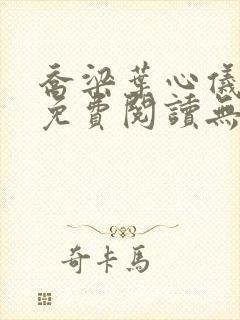 喬梁葉心儀
免費閱讀無
奇卡馬